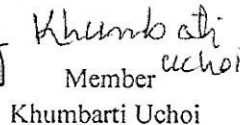 Khumbati
Uchoi
Member
Khumbarti Uchoi